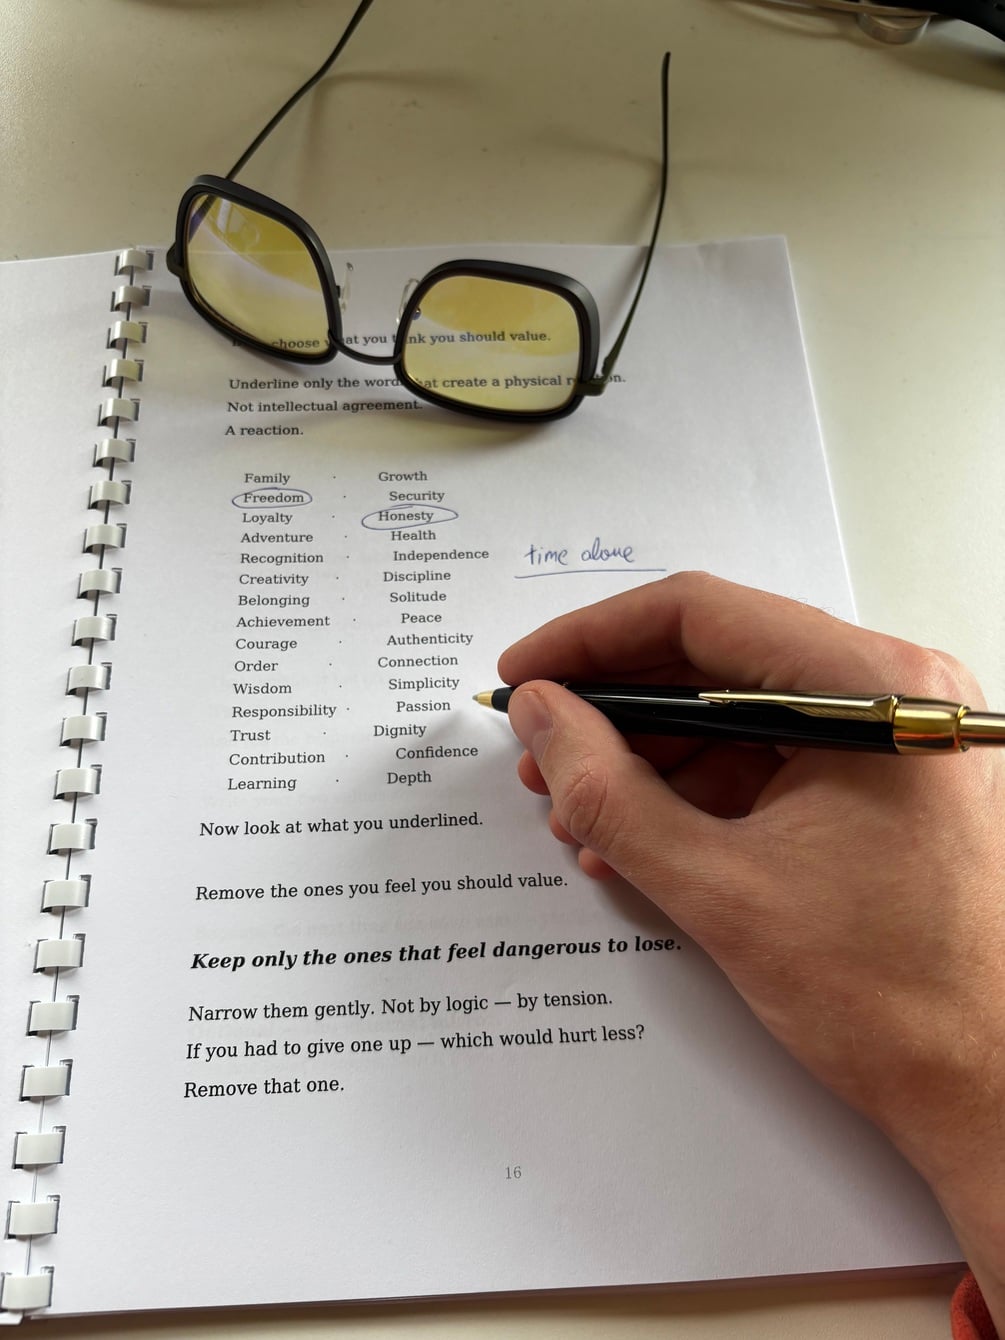 choose what you think you should value.
Underline only the words that create a physical reaction.
Not intellectual agreement.
A reaction.
Family · Growth
Freedom · Security
Loyalty · Honesty
Adventure · Health
Recognition · Independence
time alone
Creativity · Discipline
Belonging · Solitude
Achievement · Peace
Courage · Authenticity
Order · Connection
Wisdom · Simplicity
Responsibility · Passion
Trust · Dignity
Contribution · Confidence
Learning · Depth
Now look at what you underlined.
Remove the ones you feel you should value.
Keep only the ones that feel dangerous to lose.
Narrow them gently. Not by logic — by tension.
If you had to give one up — which would hurt less?
Remove that one.
16